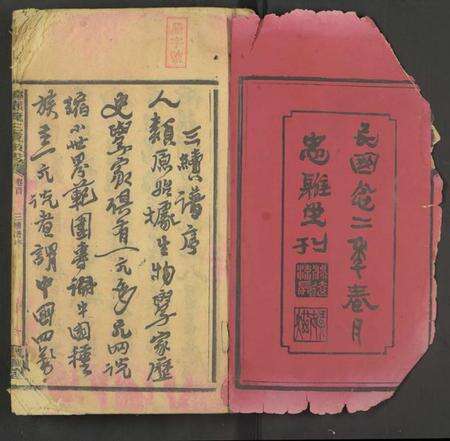 民國卅二季春月
忠雝堂刊
三續譜序
人類原始據生物學家歷
史學家俱有一元多元兩說
縮小世界範圍專講中國種
族主一元說者謂中國四萬
卷首